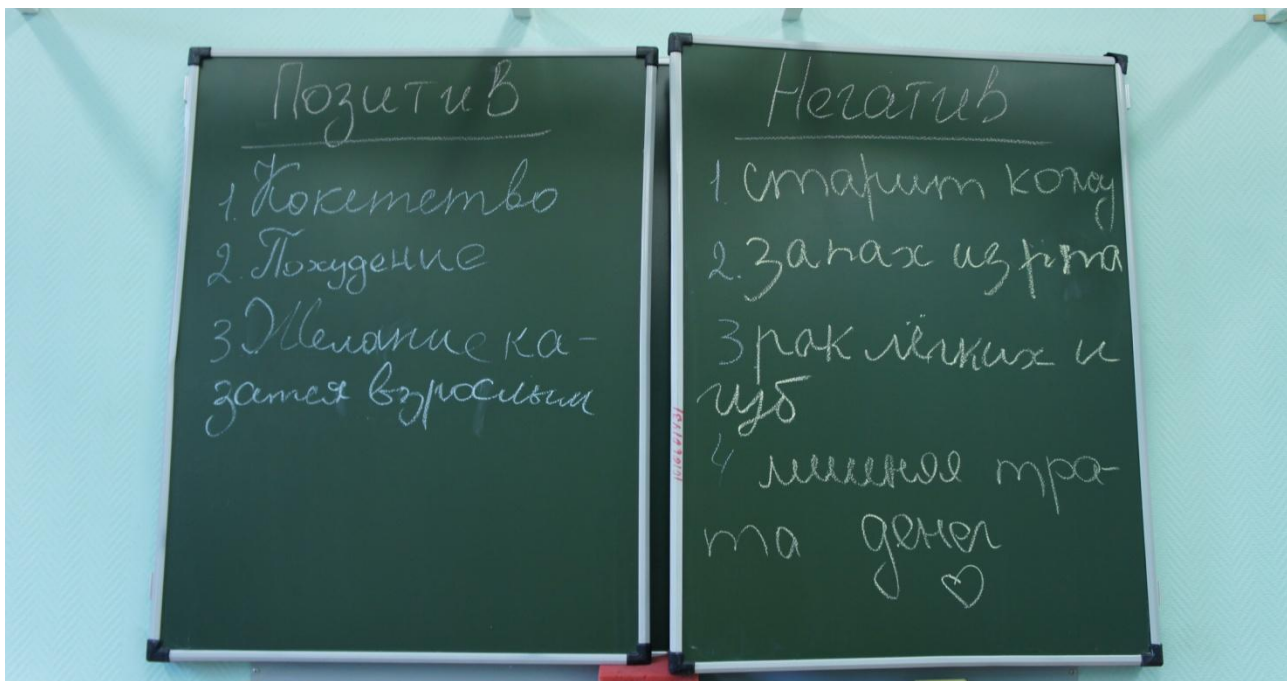 Позитив
1. Кокетство
2. Похудение
3 Желание ка-
затся взрослым
Негатив
1. старит кожу
2. запах из рта
3 рак лёгких и
губ
4 лишняя тра-
та денег